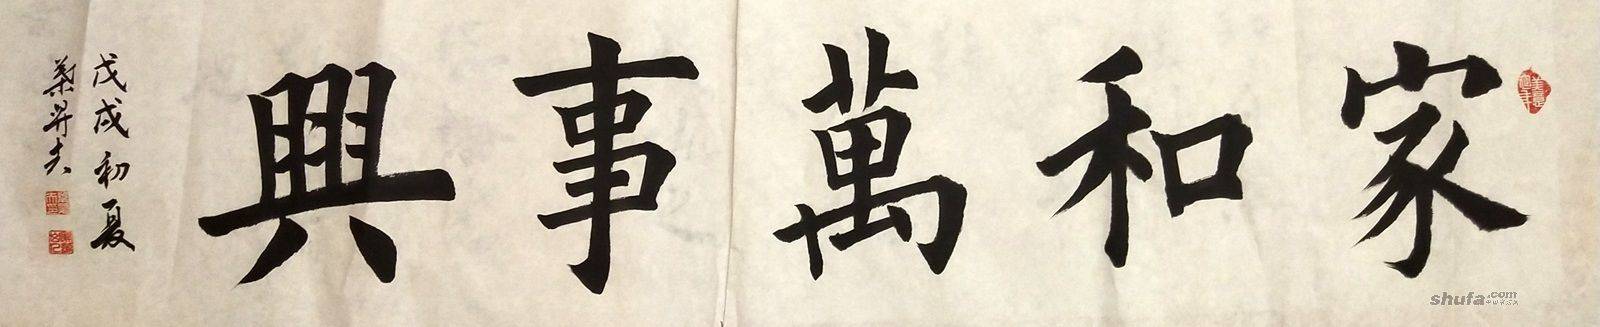 家和萬事興
戊戌初夏
葉昇夫
shufa.com